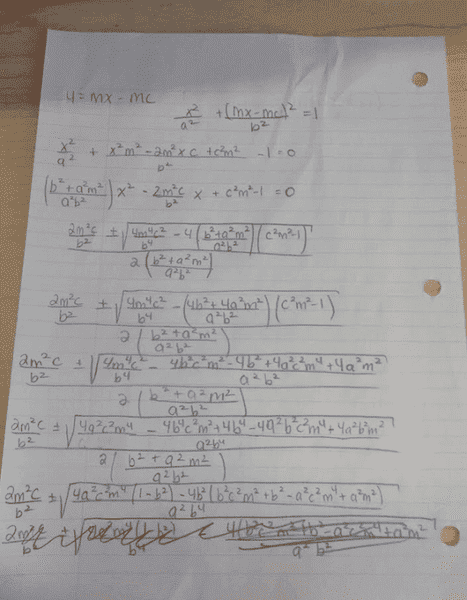 y = mx - mc
x²/a² + [mx-mc]²/b² = 1
x²/a² + (x²m² - 2m²xc + c²m²)/b² - 1 = 0
((b²+a²m²)/(a²b²)) x² - (2m²c/b²) x + c²m² - 1 = 0
(2m²c/b² ± √(4m⁴c²/b⁴ - 4((b²+a²m²)/(a²b²))(c²m²-1))) / (2((b²+a²m²)/(a²b²)))
(2m²c/b² ± √(4m⁴c²/b⁴ - ((4b²+4a²m²)/(a²b²))(c²m²-1))) / (2((b²+a²m²)/(a²b²)))
(2m²c/b² ± √(4m⁴c²/b⁴ - (4b²c²m² - 4b² + 4a²c²m⁴ + 4a²m²)/(a²b²))) / (2((b²+a²m²)/(a²b²)))
(2m²c/b² ± √((4a²c²m⁴ - 4b⁴c²m² + 4b⁴ - 4a²b²c²m⁴ + 4a²b²m²)/(a²b⁴))) / (2((b²+a²m²)/(a²b²)))
2m²c/b² ± √((4a²c²m⁴(1-b²) - 4b²(b²c²m² + b² - a²c²m⁴ + a²m²))/(a²b⁴))